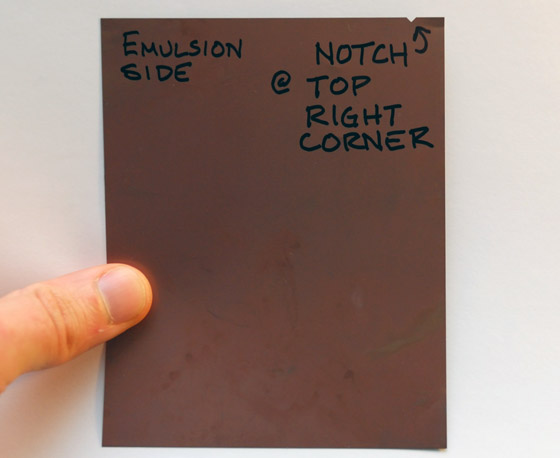 EMULSION
SIDE
NOTCH
@ TOP
RIGHT
CORNER